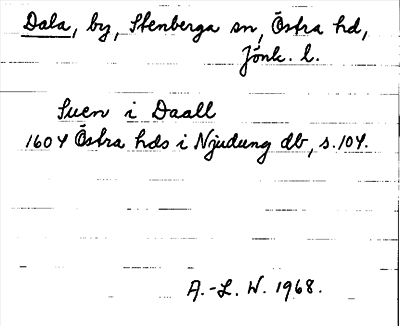 Dala, by, Stenberga sn, Östra hd,
Jönk. l.
Suen i Daall
1604 Östra hds i Njudung db, s. 104.
A.-L. W. 1968.